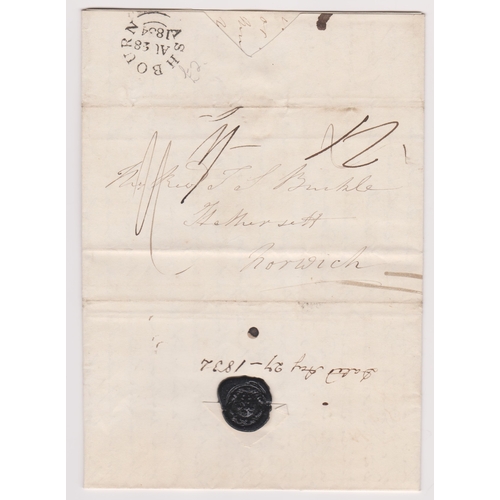 ASHBOURN
AU 28
1834
12
The Revd T S Buckle
Hethersett
Norwich
Dated Aug 27 - 1832